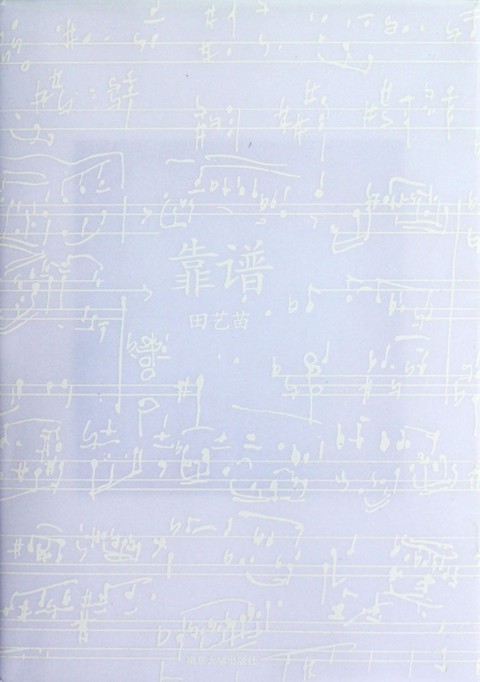 靠谱
田艺苗